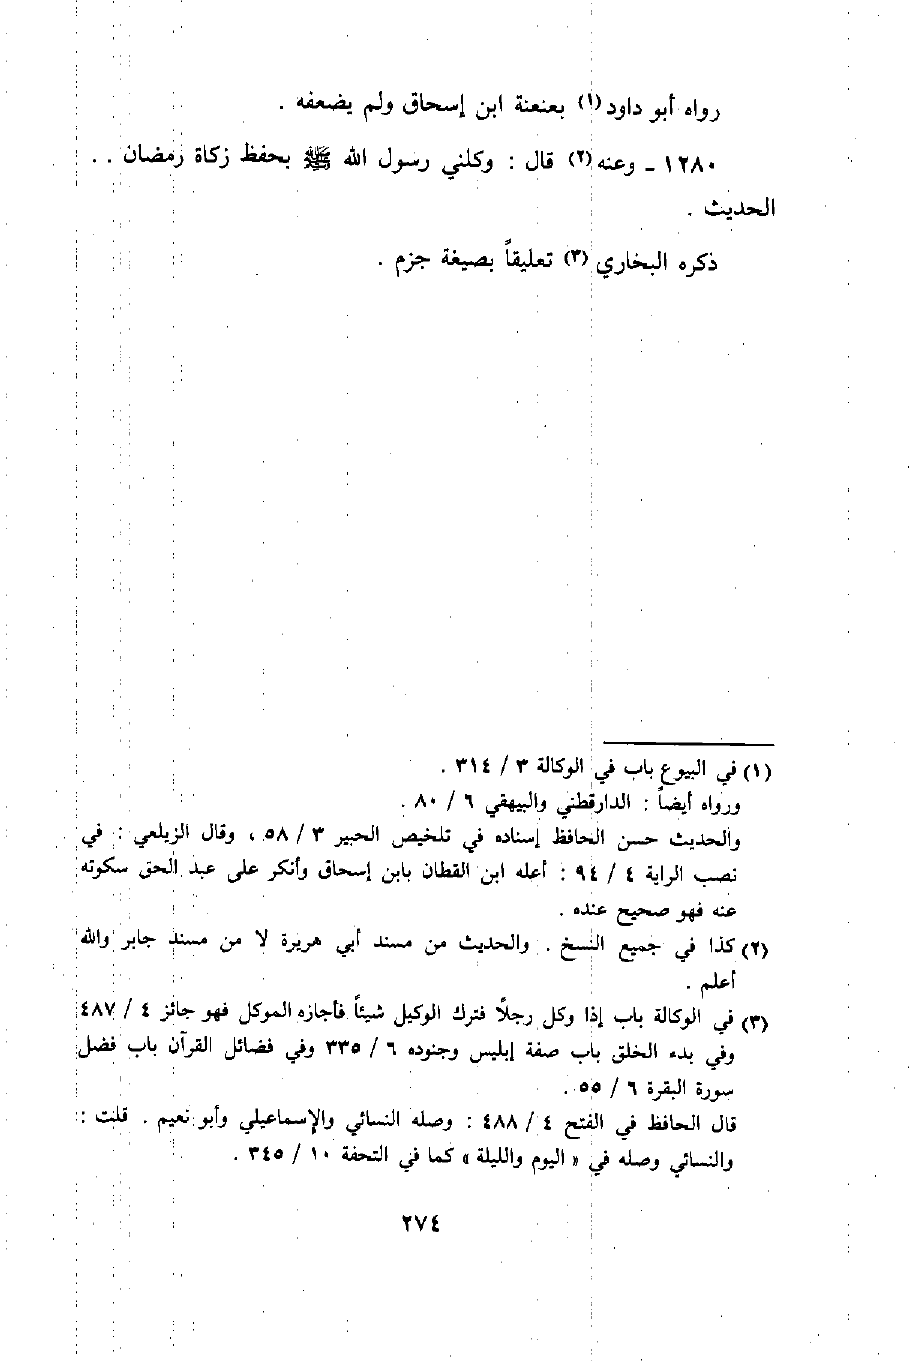 رواه أبو داود (١) بعنعنة ابن إسحاق ولم يضعفه .
١٢٨٠ - وعنه (٢) قال : وكلني رسول الله ﷺ بحفظ زكاة رمضان . .
الحديث .
ذكره البخاري (٣) تعليقاً بصيغة جزم .
(١) في البيوع باب في الوكالة ٣ / ٣١٤ .
ورواه أيضاً : الدارقطني والبيهقي ٦ / ٨٠ .
والحديث حسن الحافظ إسناده في تلخيص الحبير ٣ / ٥٨ ، وقال الزيلعي : في
نصب الراية ٤ / ٩٤ : أعله ابن القطان بابن إسحاق وأنكر على عبد الحق سكوته
عنه فهو صحيح عنده .
(٢) كذا في جميع النسخ . والحديث من مسند أبي هريرة لا من مسند جابر والله
أعلم .
(٣) في الوكالة باب إذا وكل رجلاً فترك الوكيل شيئاً فأجازه الموكل فهو جائز ٤ / ٤٨٧
وفي بدء الخلق باب صفة إبليس وجنوده ٦ / ٣٣٥ وفي فضائل القرآن باب فضل
سورة البقرة ٦ / ٥٥ .
قال الحافظ في الفتح ٤ / ٤٨٨ : وصله النسائي والإسماعيلي وأبو نعيم . قلت :
والنسائي وصله في « اليوم والليلة » كما في التحفة ١٠ / ٣٤٥ .
٢٧٤